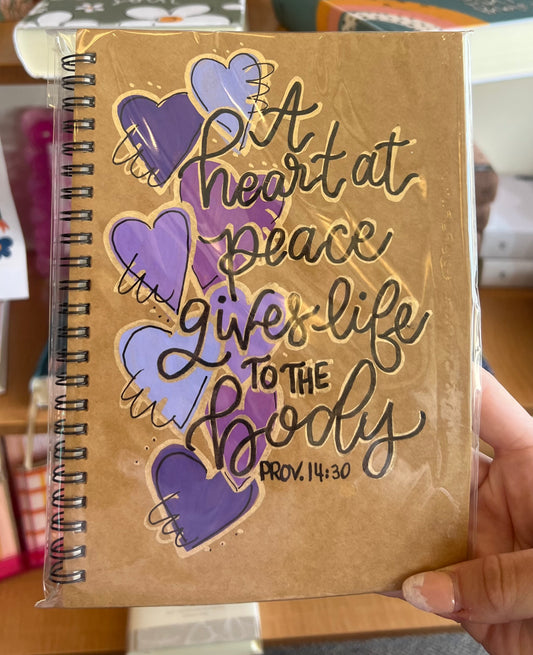 A
heart at
peace
gives life
TO THE
body
PROV. 14:30